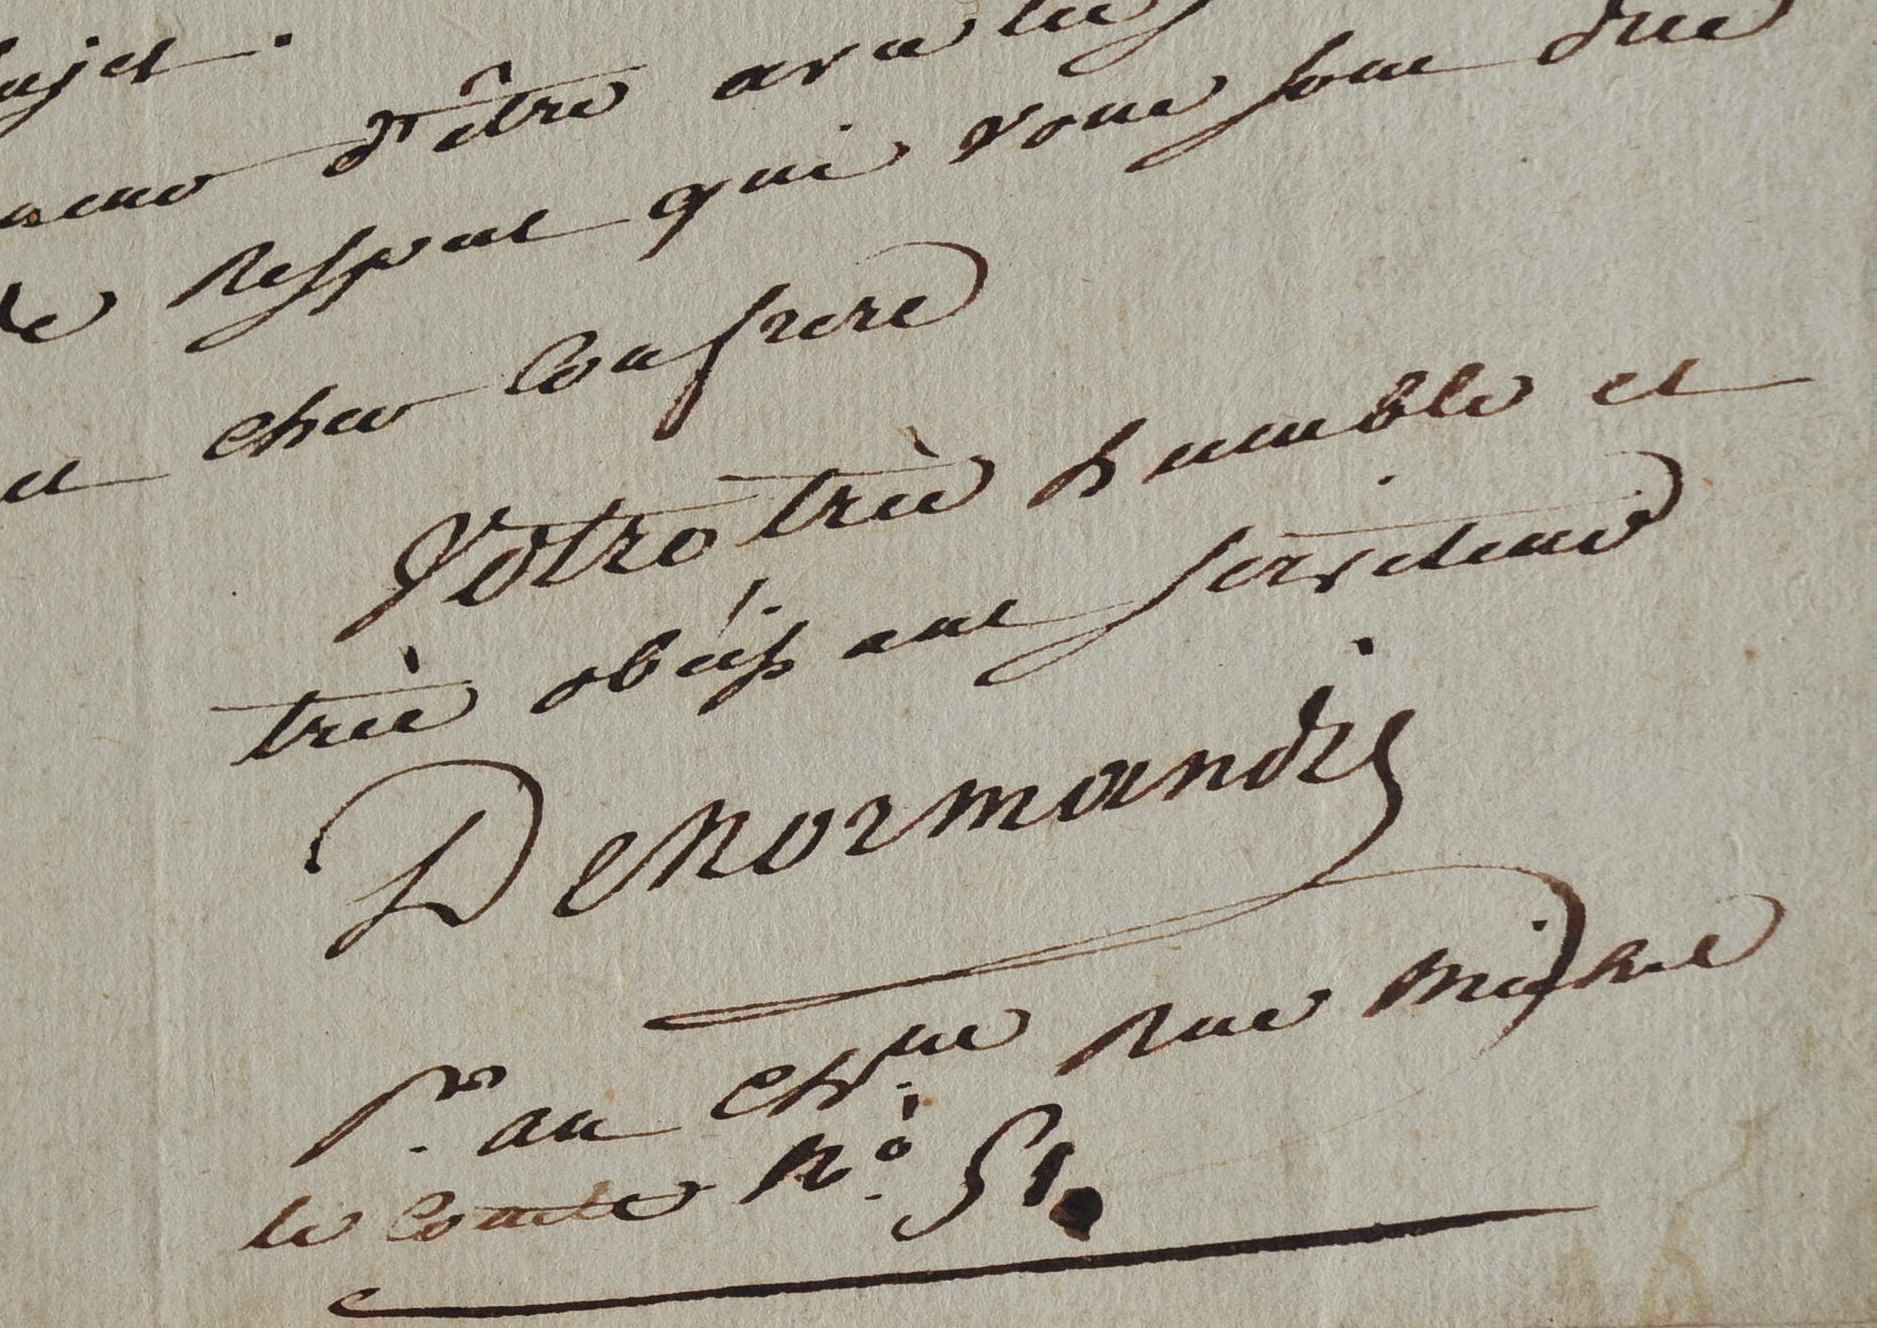 sujet.
d'être avec les
de Respect qui vous sont dus
et cher Confrere
Votre très humble et
très obéissant serviteur
DeNormandie
Pr. au Ch. Rue Michel
le Comte No. 51.